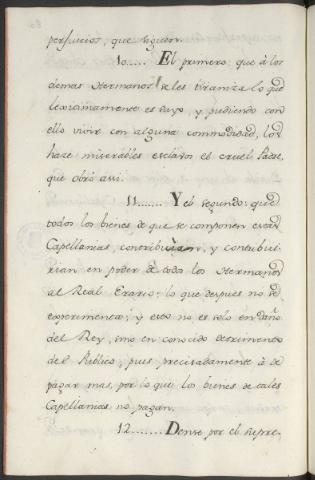 perjuicios, que siguen.
10..... El primero que à los
demas Hermanos se les tiraniza lo que
lexitimamente es suyo, y pudiendo con
ello vivir con alguna commodidad, los
haze miserables esclavos el cruel Padre,
que obró assi.
11....... Y el segundo: que
todos los bienes, de que se componen estas
Capellanias, contribuian, y contribui-
rian en poder de todos los Hermanos
al Real Erario; lo que despues no se
experimenta; y esto no es solo en daño
del Rey, imo en conocido detrimento
del Publico, pues precisadamente à de
pagar mas, por lo que los bienes de tales
Capellanias no pagan.
12....... Dense por el Repre-